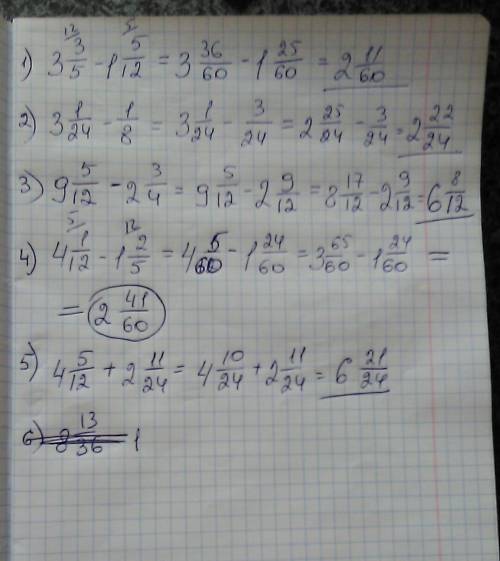 1) 3 3/5 - 1 5/12 = 3 36/60 - 1 25/60 = 2 11/60
2) 3 1/24 - 1/8 = 3 1/24 - 3/24 = 2 25/24 - 3/24 = 2 22/24
3) 9 5/12 - 2 3/4 = 9 5/12 - 2 9/12 = 8 17/12 - 2 9/12 = 6 8/12
4) 4 1/12 - 1 2/5 = 4 5/60 - 1 24/60 = 3 65/60 - 1 24/60 =
= 2 41/60
5) 4 5/12 + 2 11/24 = 4 10/24 + 2 11/24 = 6 21/24
6) 8 13/36 1